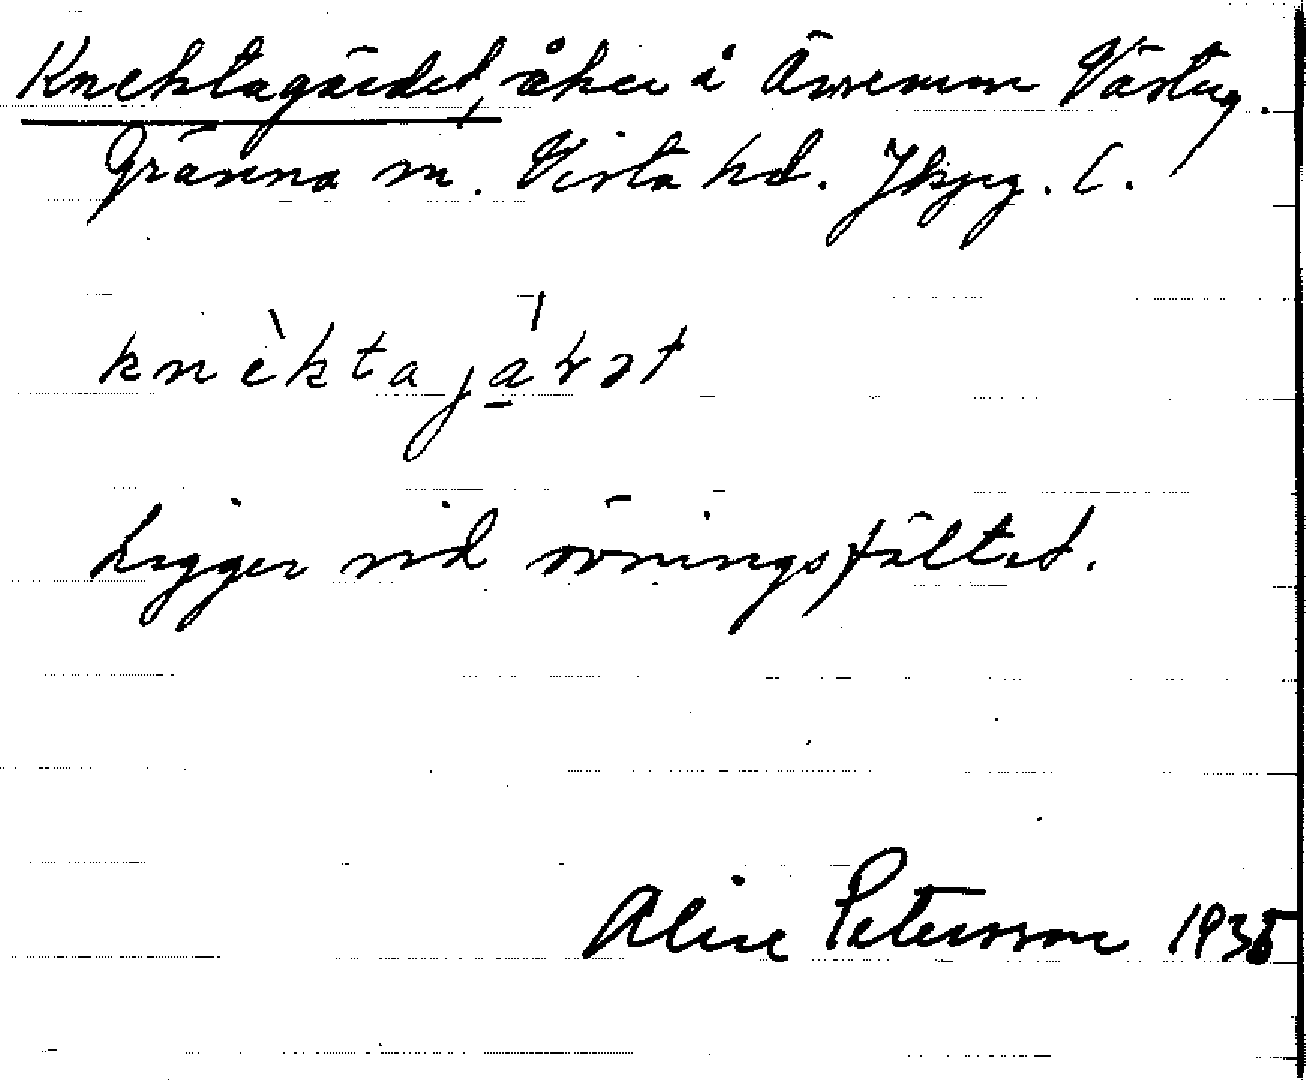 Knektagärdet, åker i Ämmemon Västerg.
Gränna sn. Vista hd. Jkpg. l.
knèktajá̱rət
Ligger vid övningsfältet.
Alice Petersson 1935